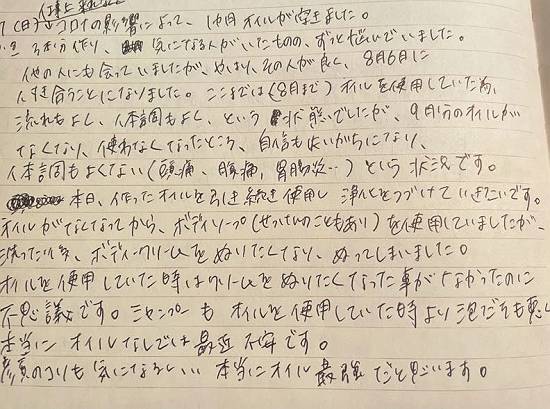 仕事上 
7(日) コロナの影響によって、1カ月オイルが空きました。
気になる人がいたものの、ずっと悩んでいました。
他の人にも会っていましたが、やはり、その人が良く、8月6日に
付き合うことになりました。ここまでは(8月まで)オイルを使用していた為、
流れもよく、体調もよく、という状態でしたが、9月分のオイルが
なくなり、使わなくなったところ、自信も失いがちになり、
体調もよくない(頭痛、腹痛、胃腸炎…)という状況です。
本日、作ったオイルを引き続き使用し浄化をつづけていきたいです。
オイルがなくなってから、ボディソープ(せっけんのこともあり)を使用していましたが、
洗った後、ボディークリームをぬりたくなり、ぬってしまいました。
オイルを使用していた時はクリームをぬりたくなった事がなかったのに
不思議です。シャンプーもオイルを使用していた時より泡だちも悪く
本当にオイルなしでは最近不安です。
顔のコリも気になるし… 本当にオイル最強だと思います。